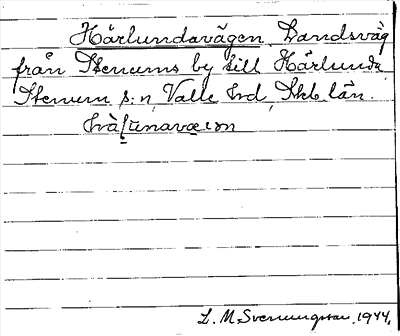 Härlundavägen, Landsväg
från Stenums by till Härlunda,
Stenum s:n, Valle hrd, Skb. län.
L. M. Svenungsson, 1944.